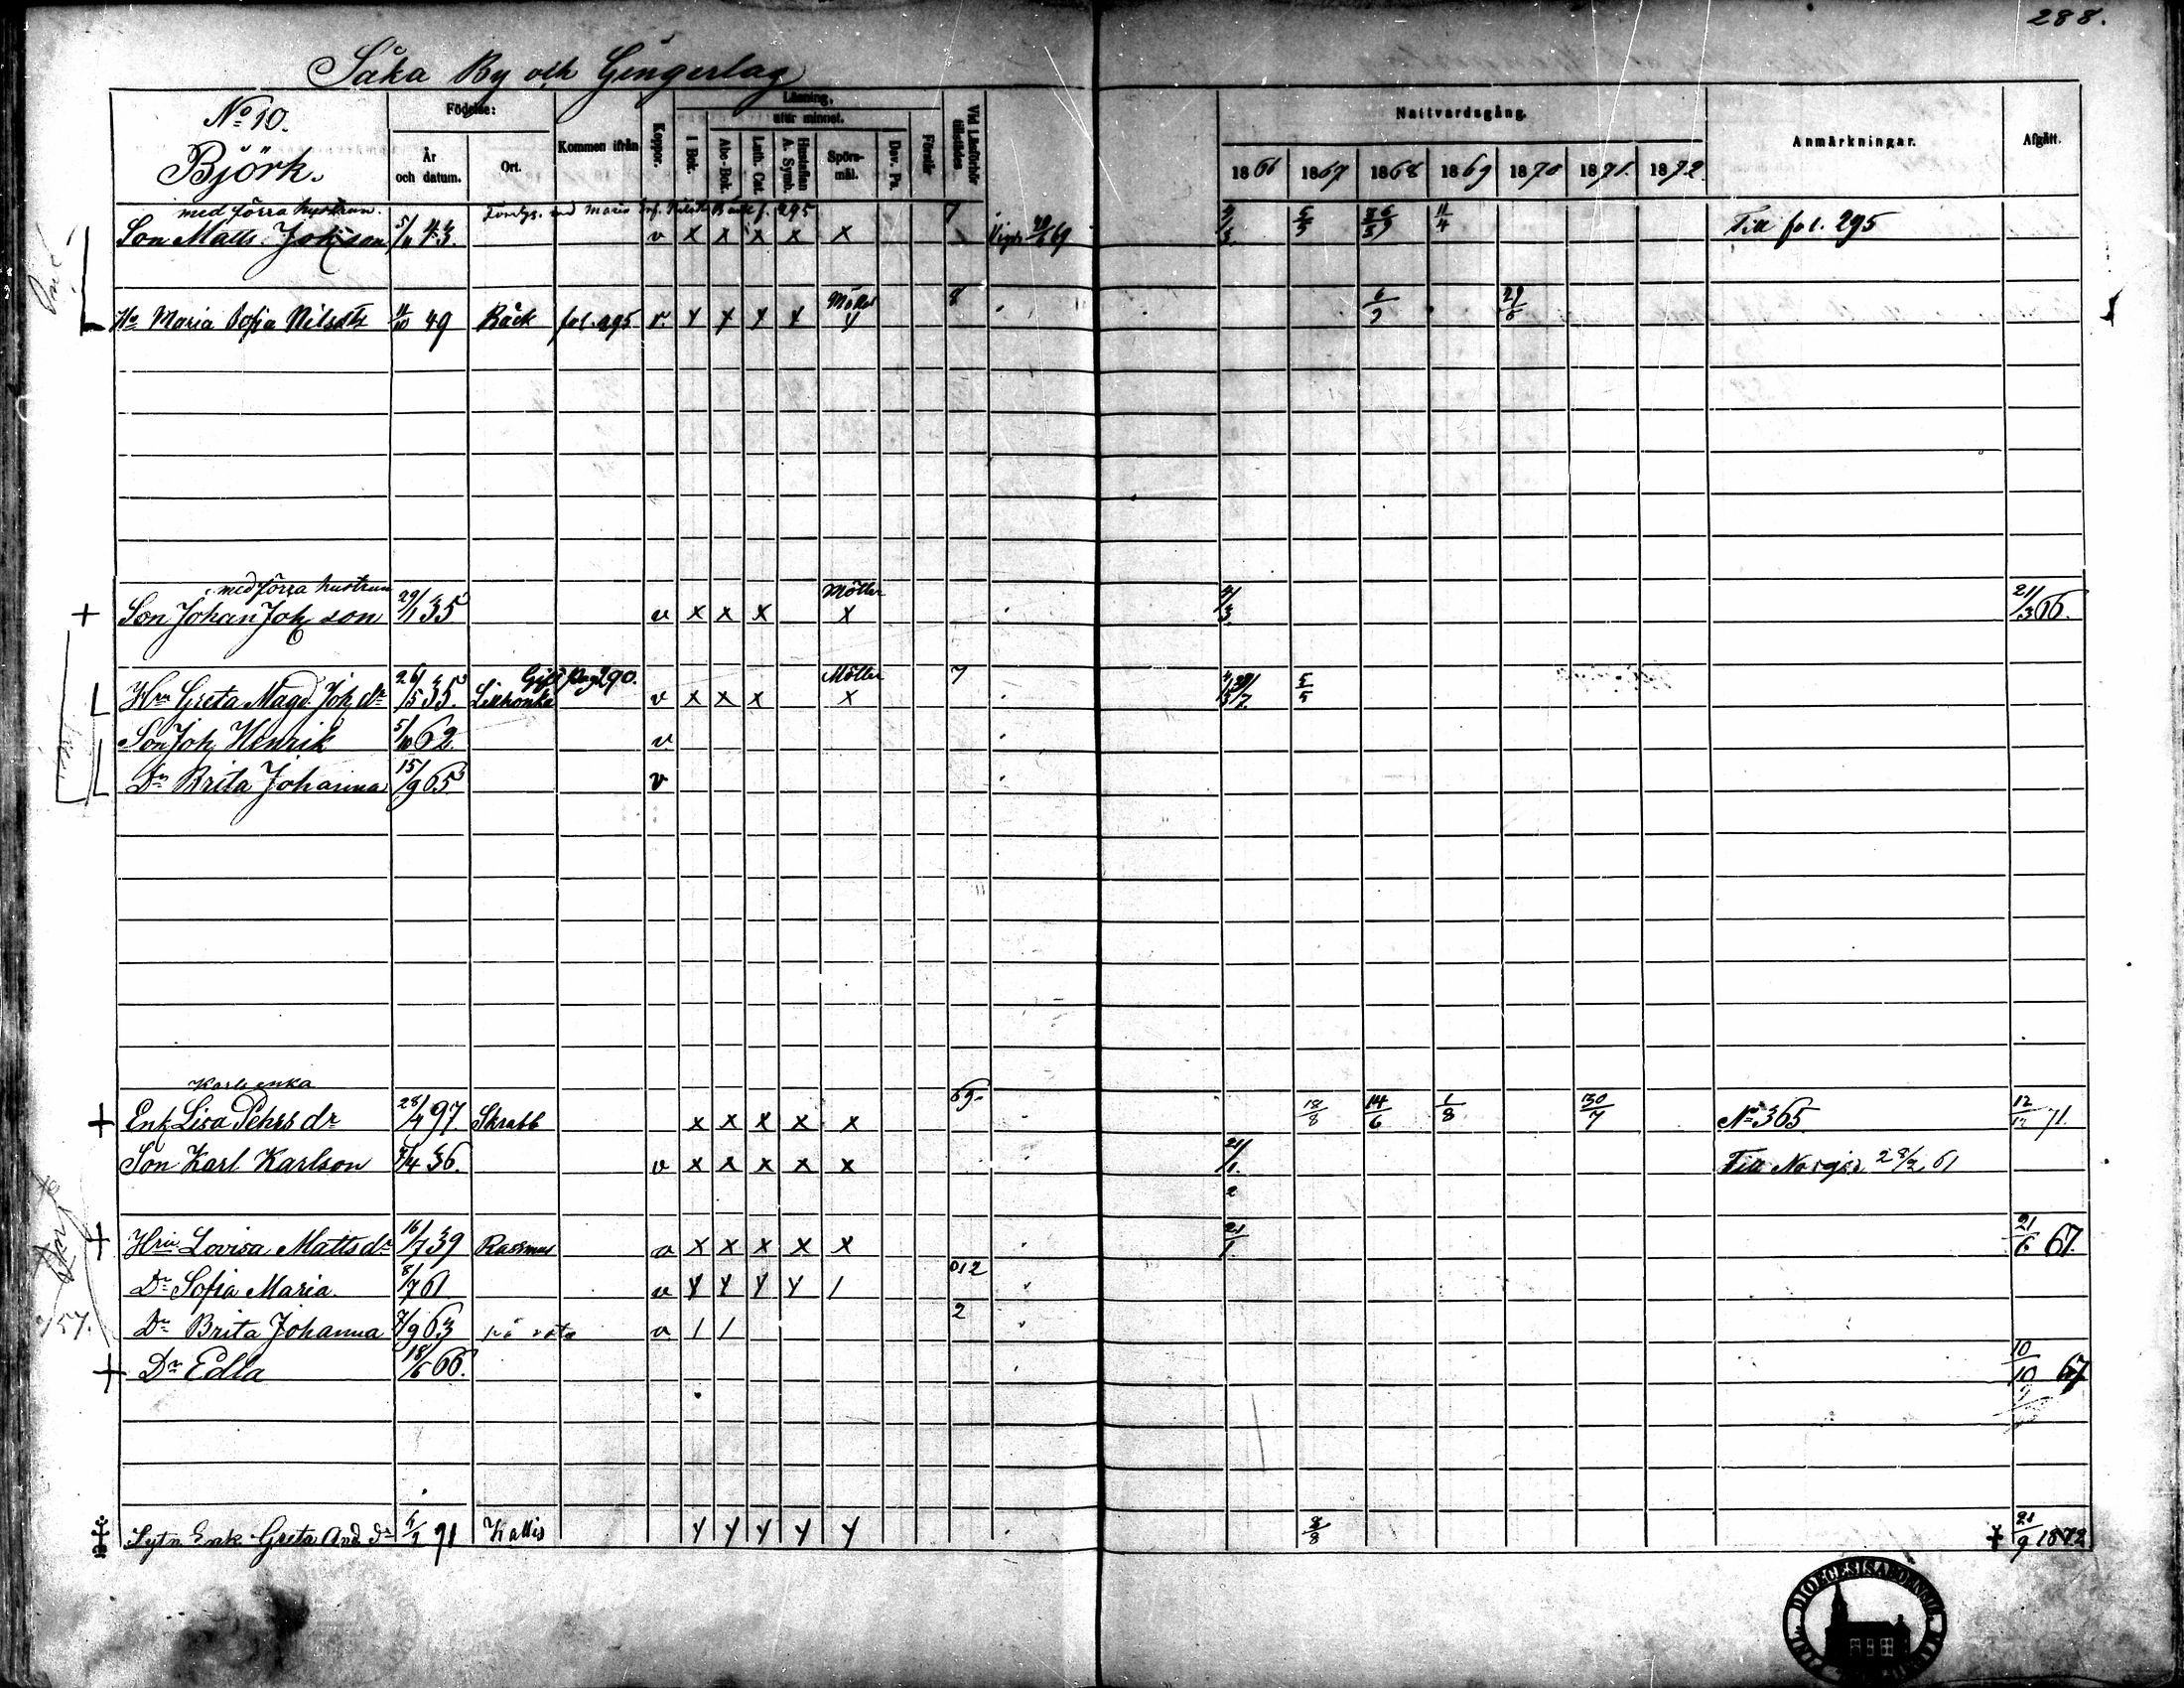 288.
Såka By och Gingerlag
No 10.
Björk.
Födelse:
År och datum.
Ort.
Kommen ifrån
Koppor.
Läsning,
utur minnet.
I Bok.
Abc-Bok.
Luth. Cat.
Hustaflan A. Symb.
Spörsmål.
Dav. Ps.
Förstår
Vid Läsförhör tillstädes
Nattvardsgång.
1866 1867 1868 1869 1870 1871 1872
Anmärkningar.
Afgått.
med förra hustrun. 295 7
Son Matts Johsson 5/11 43. v x x x x x Vigde 69 4/3 5/5 11/4 Till fol. 295
Möller 8
Hu Maria Sofia Nilsdtr 11/10 49 Bäck fol. 295 v. y y y y y 6/9 29/6
med förra hustrun Möller
+ Son Johan Joh son 29/1 35 v x x x x 4/3 21/3 66.
Gift Pag 290. Möller 7
Hru Greta Magd. Joh dr 26/5 35. v x x x x 5/5
Son Joh Henrik 5/10 62. v
Dr Brita Johanna 15/9 65 v
Karls enka 69.
+ Enk Lisa Pehrs dr 28/4 97 Skrabb x x x x x 18/8 14/6 1/8 30/7 No 365 12/12 71.
Son Karl Karlson 7/4 36. v x x x x x 21/1. Till
+ Hru Lovisa Matts dr 16/7 39 Rassmus v x x x x x 21/1. 21/6 67.
012
Dr Sofia Maria 8/7 61 v y y y y /
2
157. Dr Brita Johanna 7/9 63 v / /
+ Dr Edla 18/6 66. 10/10 67
Sytn Enk Greta And dr 91 Kallis y y y y y 8/8 21/9 1872
DIOECESIS ABOENSIS